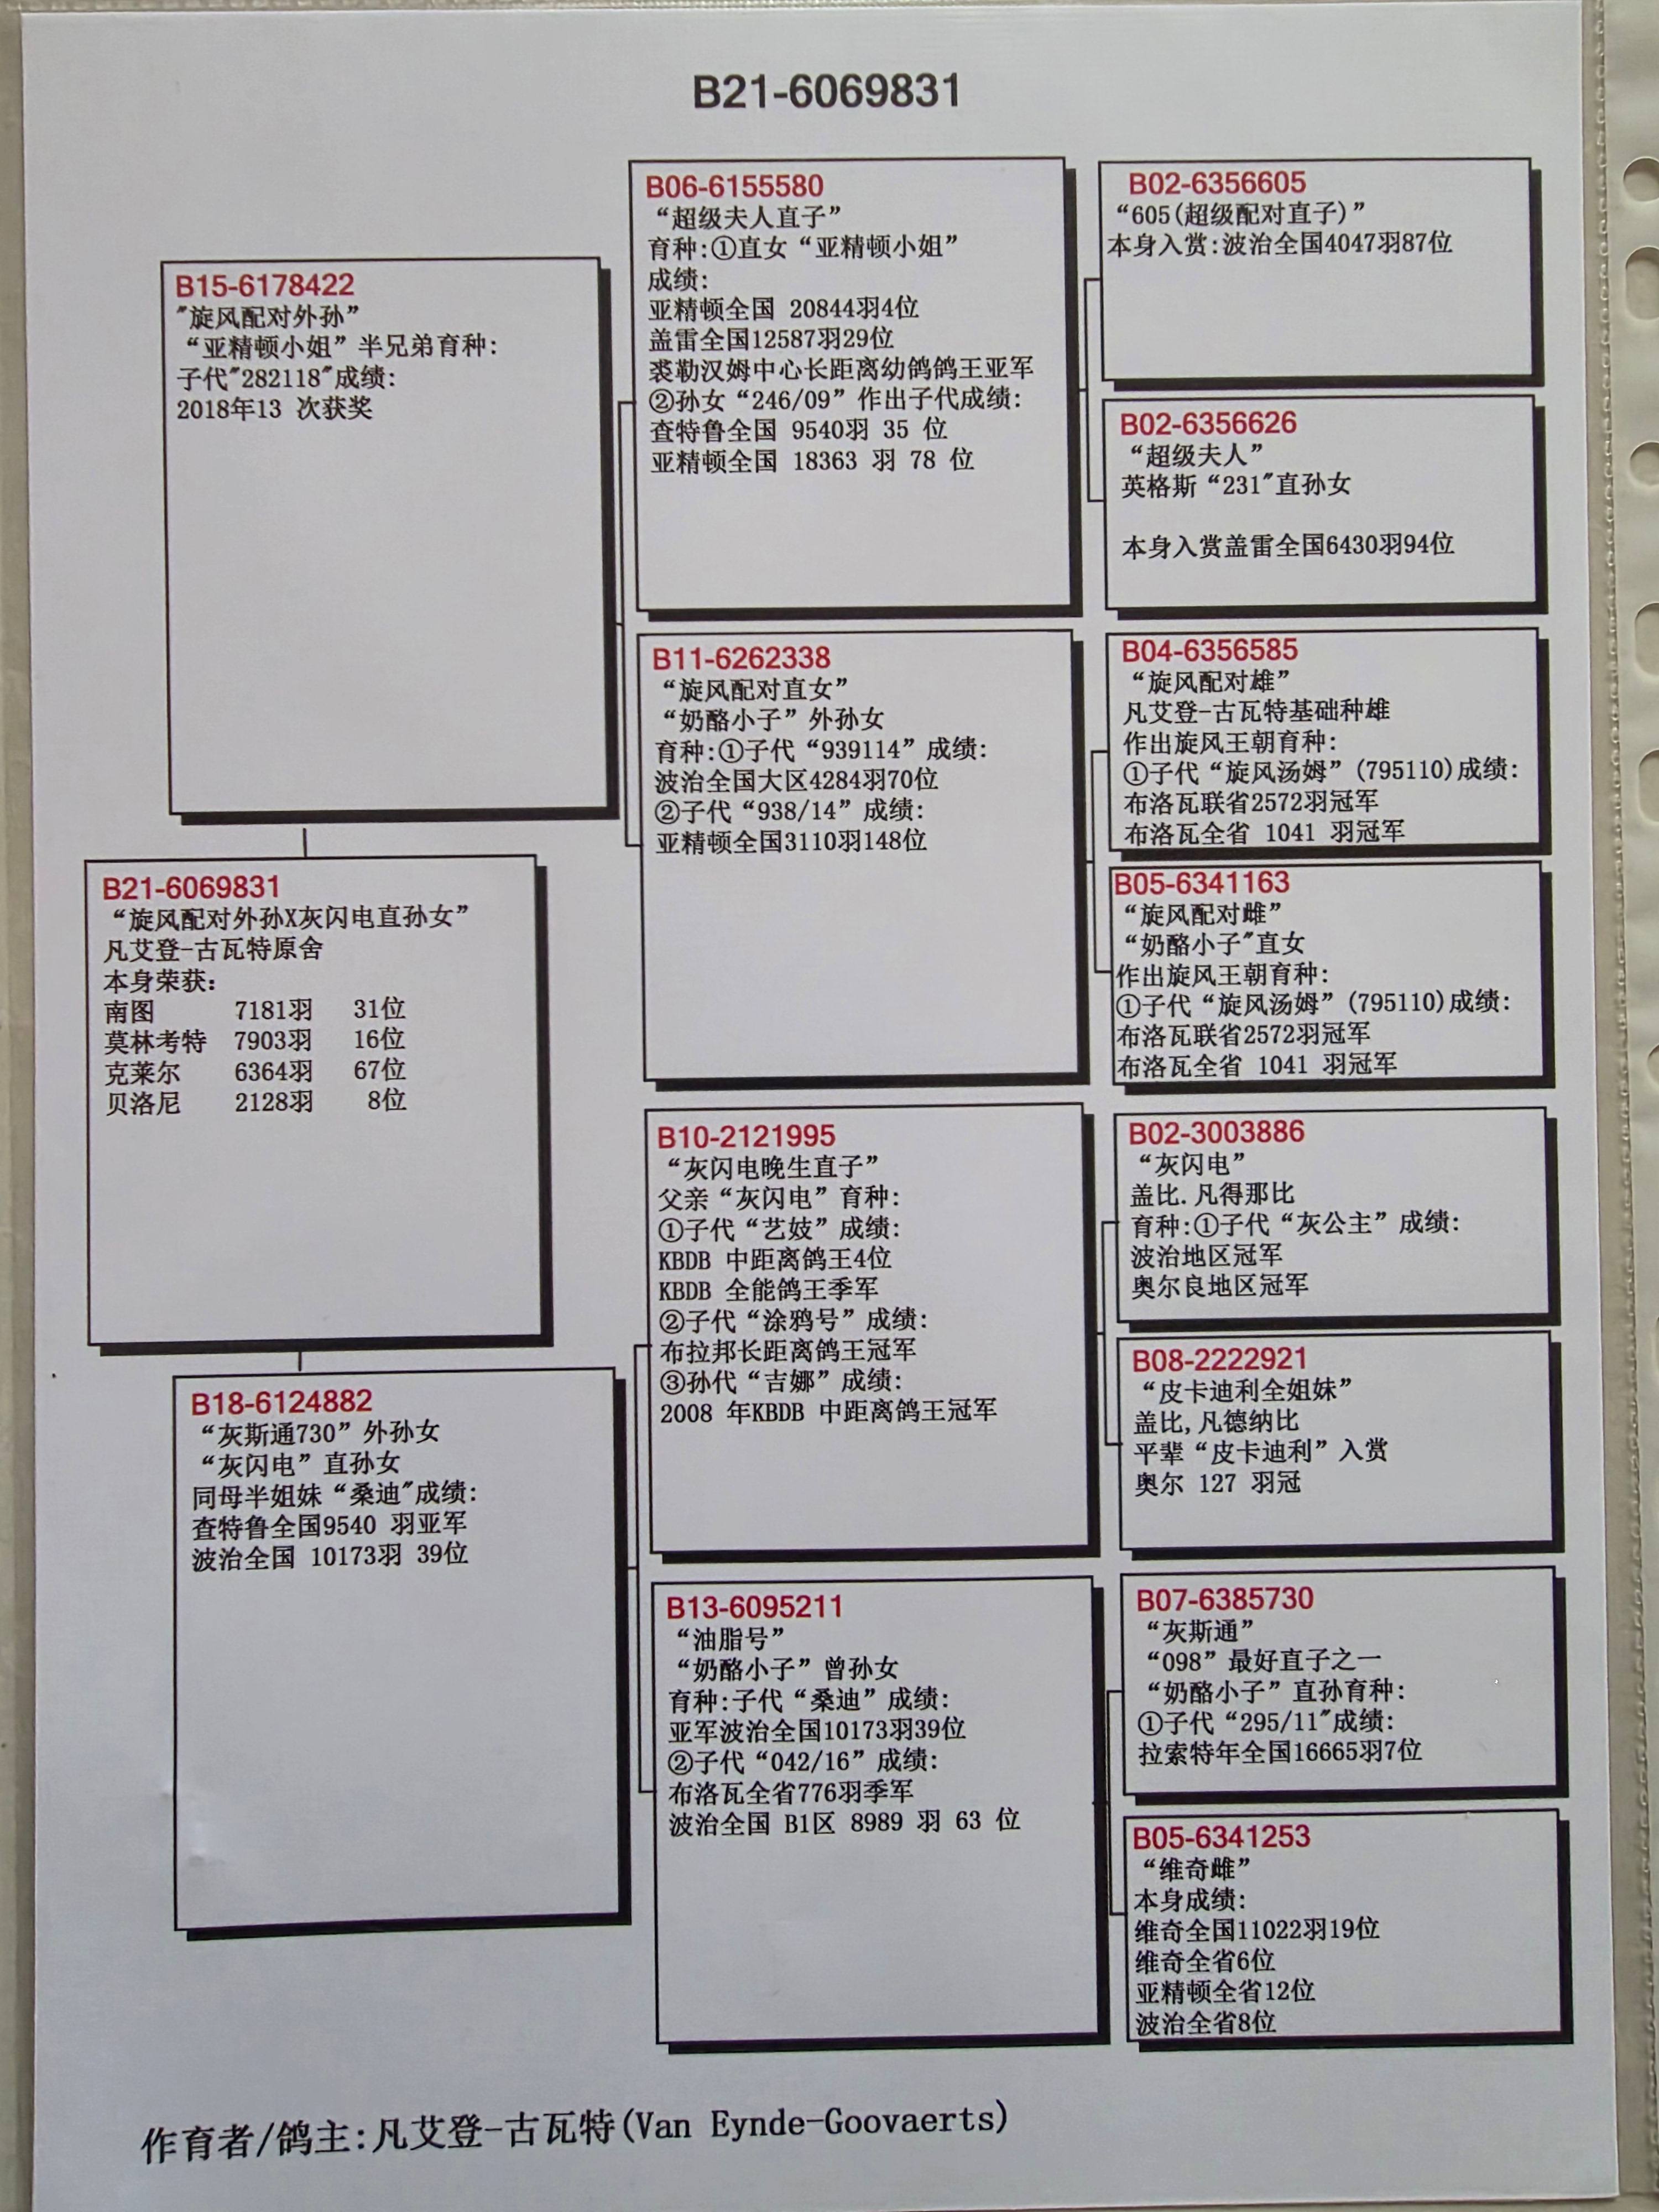 B21-6069831
B15-6178422
"旋风配对外孙”
“亚精顿小姐”半兄弟育种:
子代"282118"成绩:
2018年13 次获奖
B21-6069831
“旋风配对外孙X灰闪电直孙女”
凡艾登-古瓦特原舍
本身荣获:
南图 7181羽 31位
莫林考特 7903羽 16位
克莱尔 6364羽 67位
贝洛尼 2128羽 8位
B18-6124882
“灰斯通730”外孙女
“灰闪电”直孙女
同母半姐妹“桑迪"成绩:
查特鲁全国9540 羽亚军
波治全国 10173羽 39位
B06-6155580
“超级夫人直子”
育种:①直女“亚精顿小姐”
成绩:
亚精顿全国 20844羽4位
盖雷全国12587羽29位
裘勒汉姆中心长距离幼鸽鸽王亚军
②孙女“246/09”作出子代成绩:
查特鲁全国 9540羽 35 位
亚精顿全国 18363 羽 78 位
B11-6262338
“旋风配对直女”
“奶酪小子”外孙女
育种:①子代“939114”成绩:
波治全国大区4284羽70位
②子代“938/14”成绩:
亚精顿全国3110羽148位
B10-2121995
“灰闪电晚生直子”
父亲“灰闪电”育种:
①子代“艺妓”成绩:
KBDB 中距离鸽王4位
KBDB 全能鸽王季军
②子代“涂鸦号”成绩:
布拉邦长距离鸽王冠军
③孙代“吉娜”成绩:
2008 年KBDB 中距离鸽王冠军
B13-6095211
“油脂号”
“奶酪小子”曾孙女
育种:子代“桑迪”成绩:
亚军波治全国10173羽39位
②子代“042/16”成绩:
布洛瓦全省776羽季军
波治全国 B1区 8989 羽 63 位
B02-6356605
“605(超级配对直子)”
本身入赏:波治全国4047羽87位
B02-6356626
“超级夫人”
英格斯“231"直孙女
本身入赏盖雷全国6430羽94位
B04-6356585
“旋风配对雄”
凡艾登-古瓦特基础种雄
作出旋风王朝育种:
①子代“旋风汤姆”(795110)成绩:
布洛瓦联省2572羽冠军
布洛瓦全省 1041 羽冠军
B05-6341163
“旋风配对雌”
“奶酪小子"直女
作出旋风王朝育种:
①子代“旋风汤姆”(795110)成绩:
布洛瓦联省2572羽冠军
布洛瓦全省 1041 羽冠军
B02-3003886
“灰闪电”
盖比.凡得那比
育种:①子代“灰公主”成绩:
波治地区冠军
奥尔良地区冠军
B08-2222921
“皮卡迪利全姐妹”
盖比,凡德纳比
平辈“皮卡迪利”入赏
奥尔 127 羽冠
B07-6385730
“灰斯通”
“098”最好直子之一
“奶酪小子”直孙育种:
①子代“295/11"成绩:
拉索特年全国16665羽7位
B05-6341253
“维奇雌”
本身成绩:
维奇全国11022羽19位
维奇全省6位
亚精顿全省12位
波治全省8位
作育者/鸽主:凡艾登-古瓦特(Van Eynde-Goovaerts)